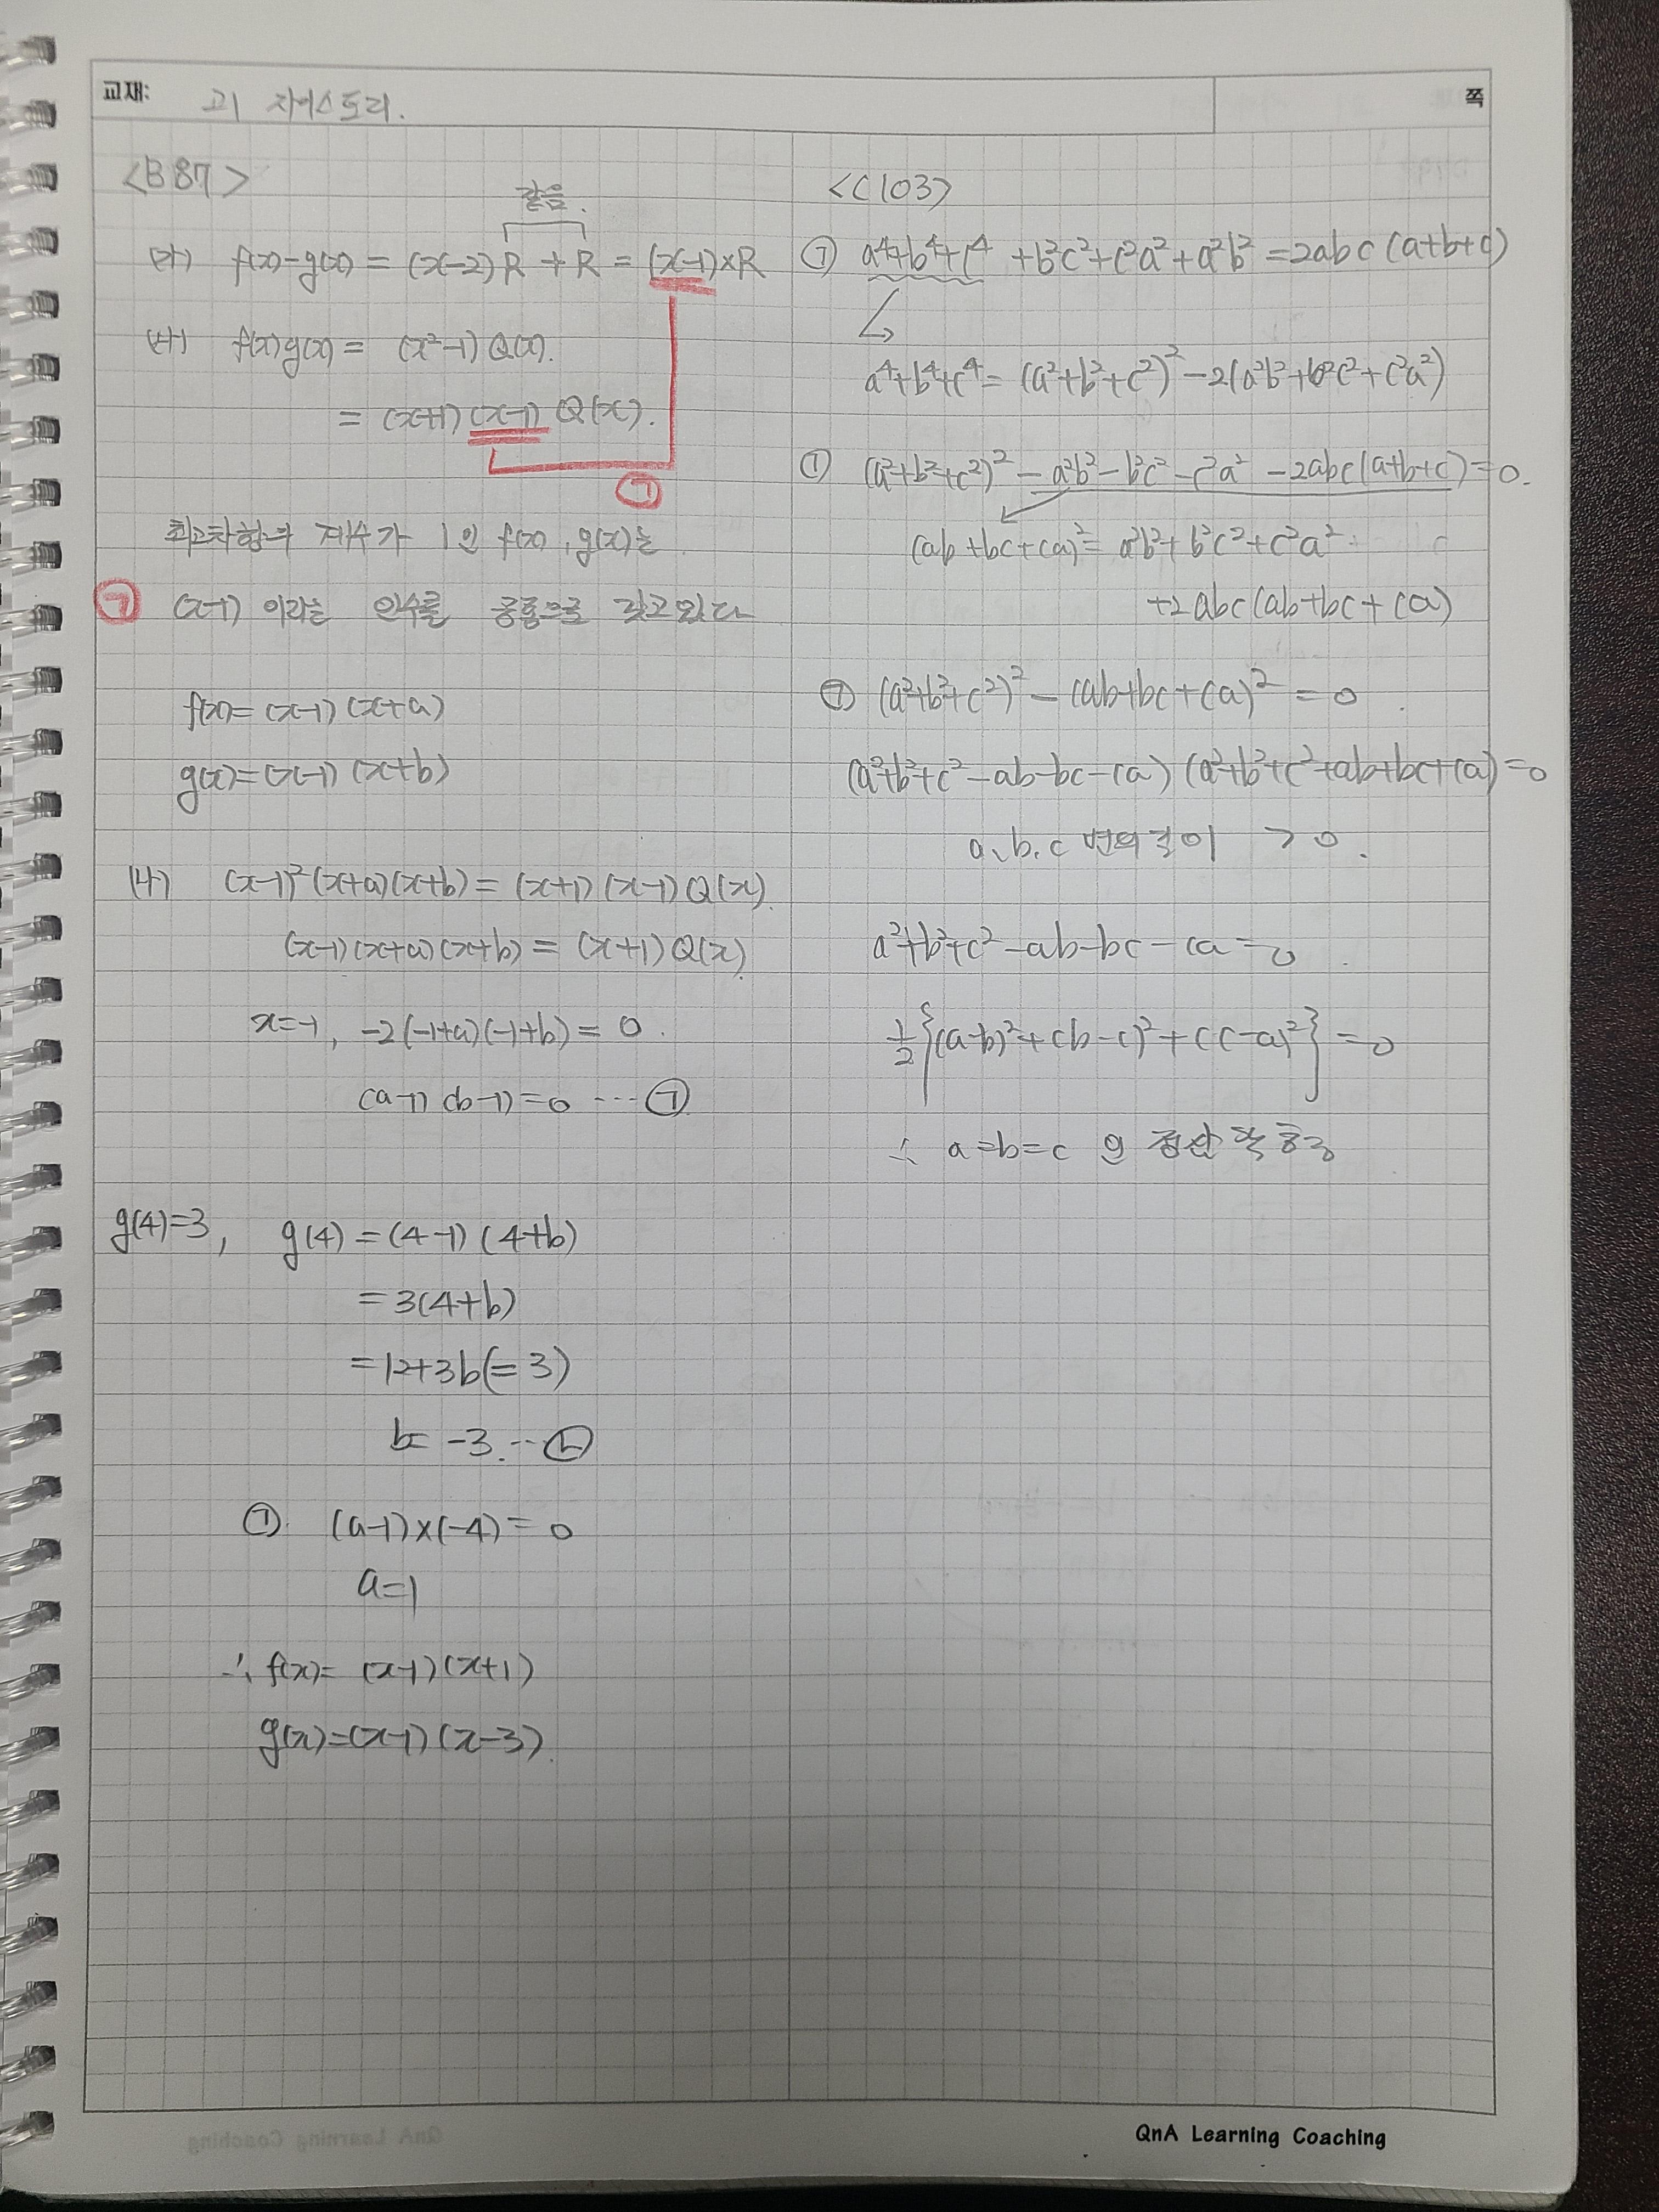 교재: 고1 자이스토리.
쪽
<B 87>
같음.
(가) f(x)-g(x) = (x-2)R + R = (x-1)×R
(나) f(x)g(x) = (x²-1)Q(x).
= (x+1)(x-1)Q(x).
㉠
최고차항의 계수가 1인 f(x), g(x)는
㉠ (x-1) 이라는 인수를 공통으로 갖고 있다
f(x)=(x-1)(x+a)
g(x)=(x-1)(x+b)
(나) (x-1)²(x+a)(x+b)=(x+1)(x-1)Q(x)
(x-1)(x+a)(x+b)=(x+1)Q(x)
x=-1, -2(-1+a)(-1+b)=0.
(a-1)(b-1)=0 ⋯ ㉠
g(4)=3, g(4)=(4-1)(4+b)
=3(4+b)
=12+3b(=3)
b=-3. ⋯ ㉡
㉠. (a-1)×(-4)=0
a=1
∴ f(x)=(x-1)(x+1)
g(x)=(x-1)(x-3).
<C103>
㉠ a⁴+b⁴+c⁴+b²c²+c²a²+a²b²=2abc(a+b+c)
a⁴+b⁴+c⁴=(a²+b²+c²)²-2(a²b²+b²c²+c²a²)
㉠ (a²+b²+c²)²-a²b²-b²c²-c²a²-2abc(a+b+c)=0.
(ab+bc+ca)²=a²b²+b²c²+c²a²
+2abc(ab+bc+ca)
㉠ (a²+b²+c²)²-(ab+bc+ca)²=0.
(a²+b²+c²-ab-bc-ca)(a²+b²+c²+ab+bc+ca)=0
a, b, c 변의 길이 >0.
a²+b²+c²-ab-bc-ca=0.
½{(a-b)²+(b-c)²+(c-a)²}=0
∴ a=b=c 인 정삼각형
QnA Learning Coaching